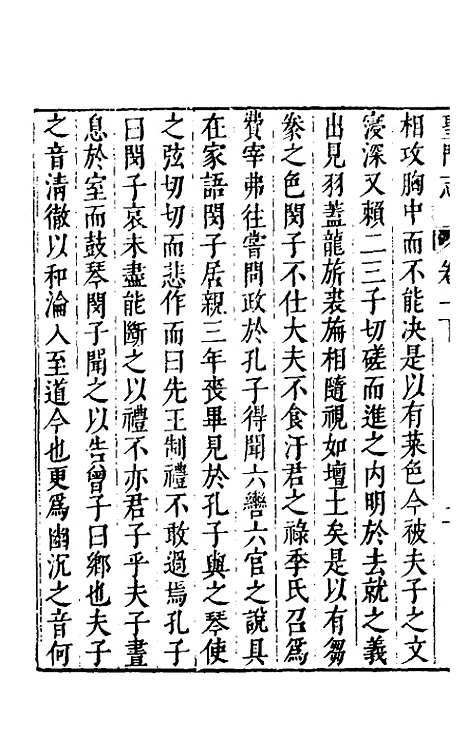 聖門志 卷一下
相攻胸中而不能决是以有萊色今被夫子之文
寖深又賴二三子切磋而進之内明於去就之義
出見羽蓋龍旂裘旃相隨視如壇土矣是以有芻
豢之色閔子不仕大夫不食汙君之祿季氏召爲
費宰弗往嘗問政於孔子得聞六轡六官之說具
在家語閔子居親三年喪畢見於孔子與之琴使
之弦切切而悲作而曰先王制禮不敢過焉孔子
曰閔子哀未盡能斷之以禮不亦君子乎夫子晝
息於室而鼓琴閔子聞之以告曾子曰鄉也夫子
之音清徹以和淪入至道今也更爲幽沉之音何